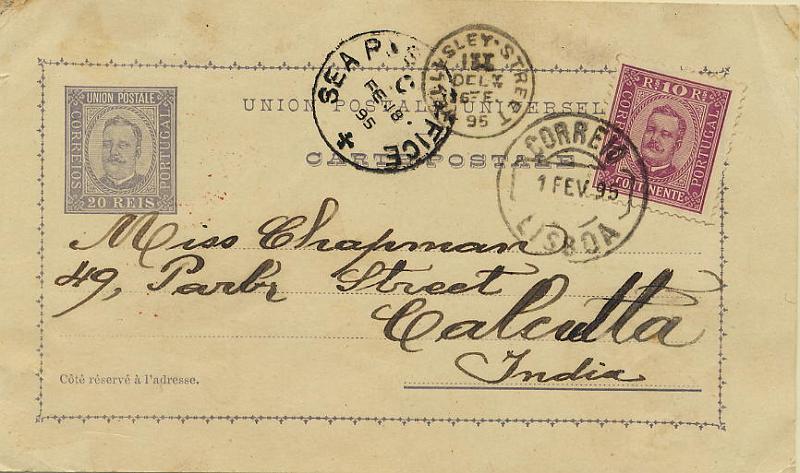 UNION POSTALE UNIVERSELLE
CARTE POSTALE
UNION POSTALE
CORREIOS
PORTUGAL
20 REIS
SEA POST OFFICE
FE 18
95
WELLESLEY-STREET
DELY
16 FE
95
CORREIO
1 FEV. 95
LISBOA
Rs 10 Rs
CORREIOS
PORTUGAL
CONTINENTE
Miss Chapman
49, Park Street
Calcutta
India
Côté réservé à l'adresse.